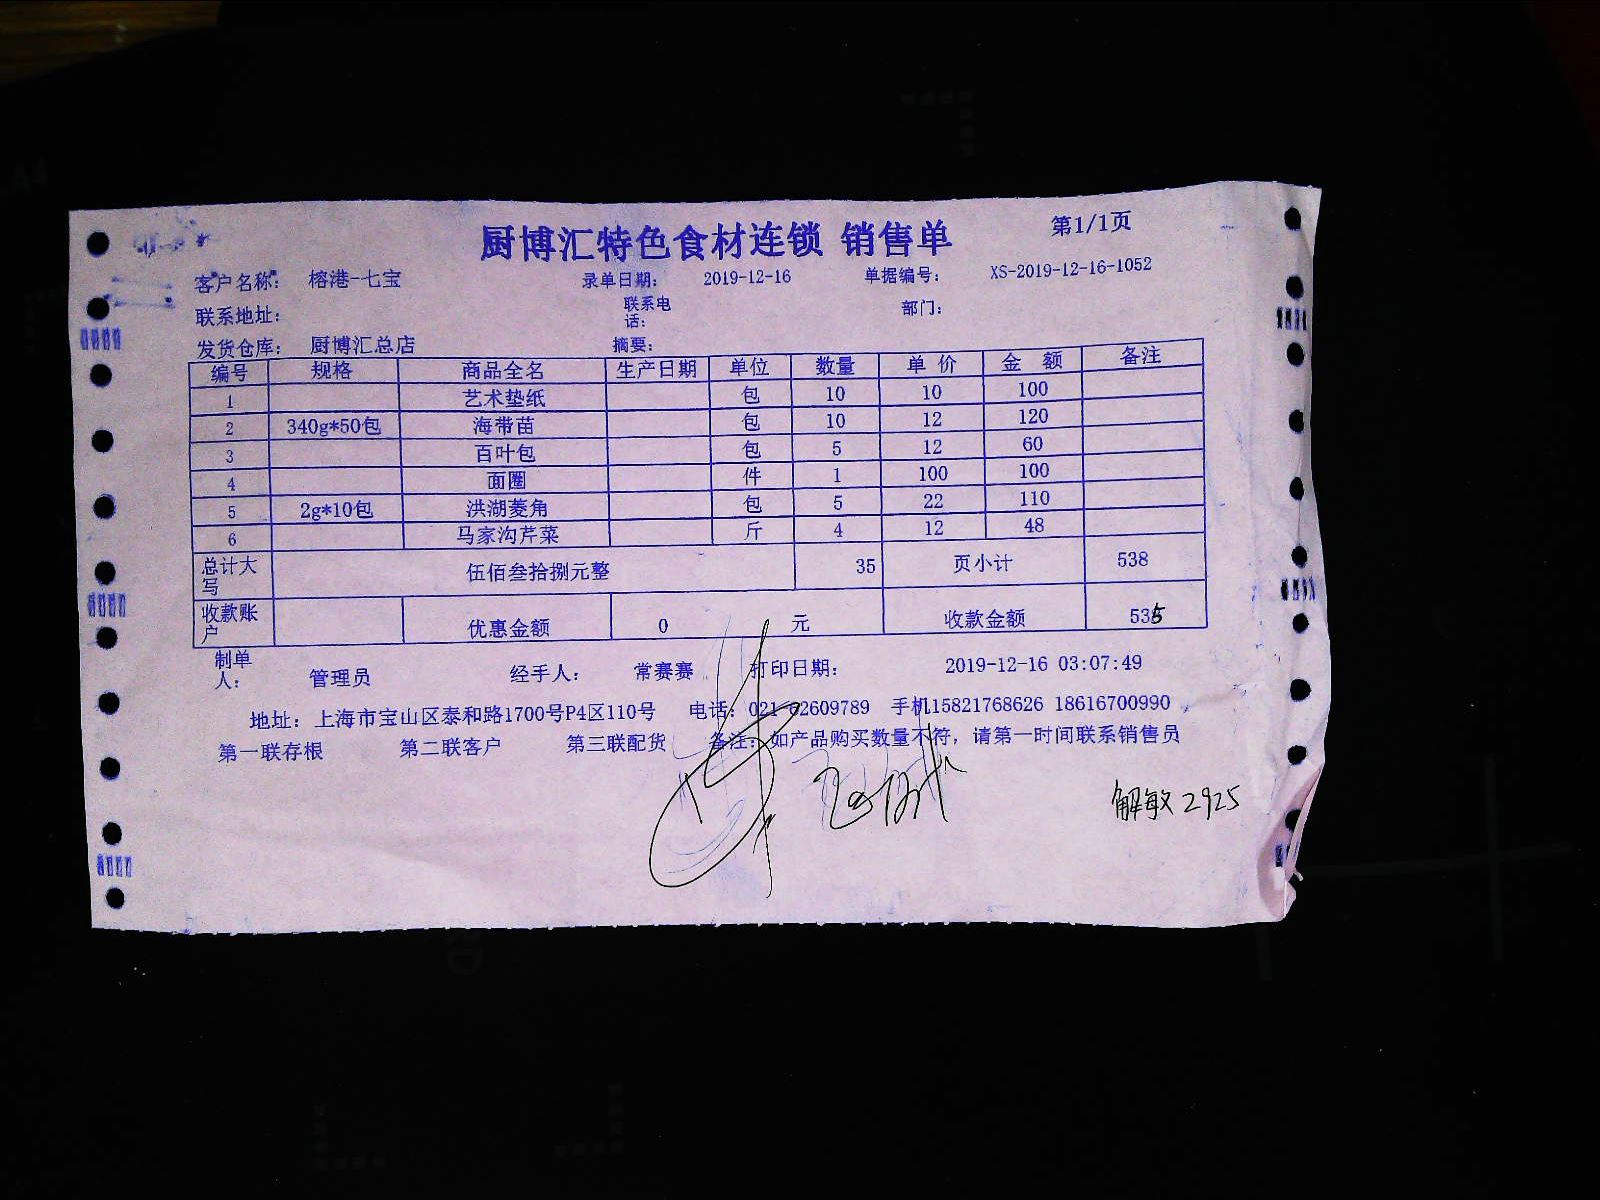 厨博汇特色食材连锁 销售单 第1/1页
客户名称: 榕港-七宝 录单日期: 2019-12-16 单据编号: XS-2019-12-16-1052
联系地址: 联系电话: 部门:
发货仓库: 厨博汇总店 摘要:
编号 规格 商品全名 生产日期 单位 数量 单价 金额 备注
1 艺术垫纸 包 10 10 100
2 340g*50包 海带苗 包 10 12 120
3 百叶包 包 5 12 60
4 面圈 件 1 100 100
5 2g*10包 洪湖菱角 包 5 22 110
6 马家沟芹菜 斤 4 12 48
总计大写 伍佰叁拾捌元整 35 页小计 538
收款账户 优惠金额 0 元 收款金额 535
制单人: 管理员 经手人: 常赛赛 打印日期: 2019-12-16 03:07:49
地址: 上海市宝山区泰和路1700号P4区110号 电话: 021-62609789 手机15821768626 18616700990
第一联存根 第二联客户 第三联配货 备注: 如产品购买数量不符, 请第一时间联系销售员
解敏 2925